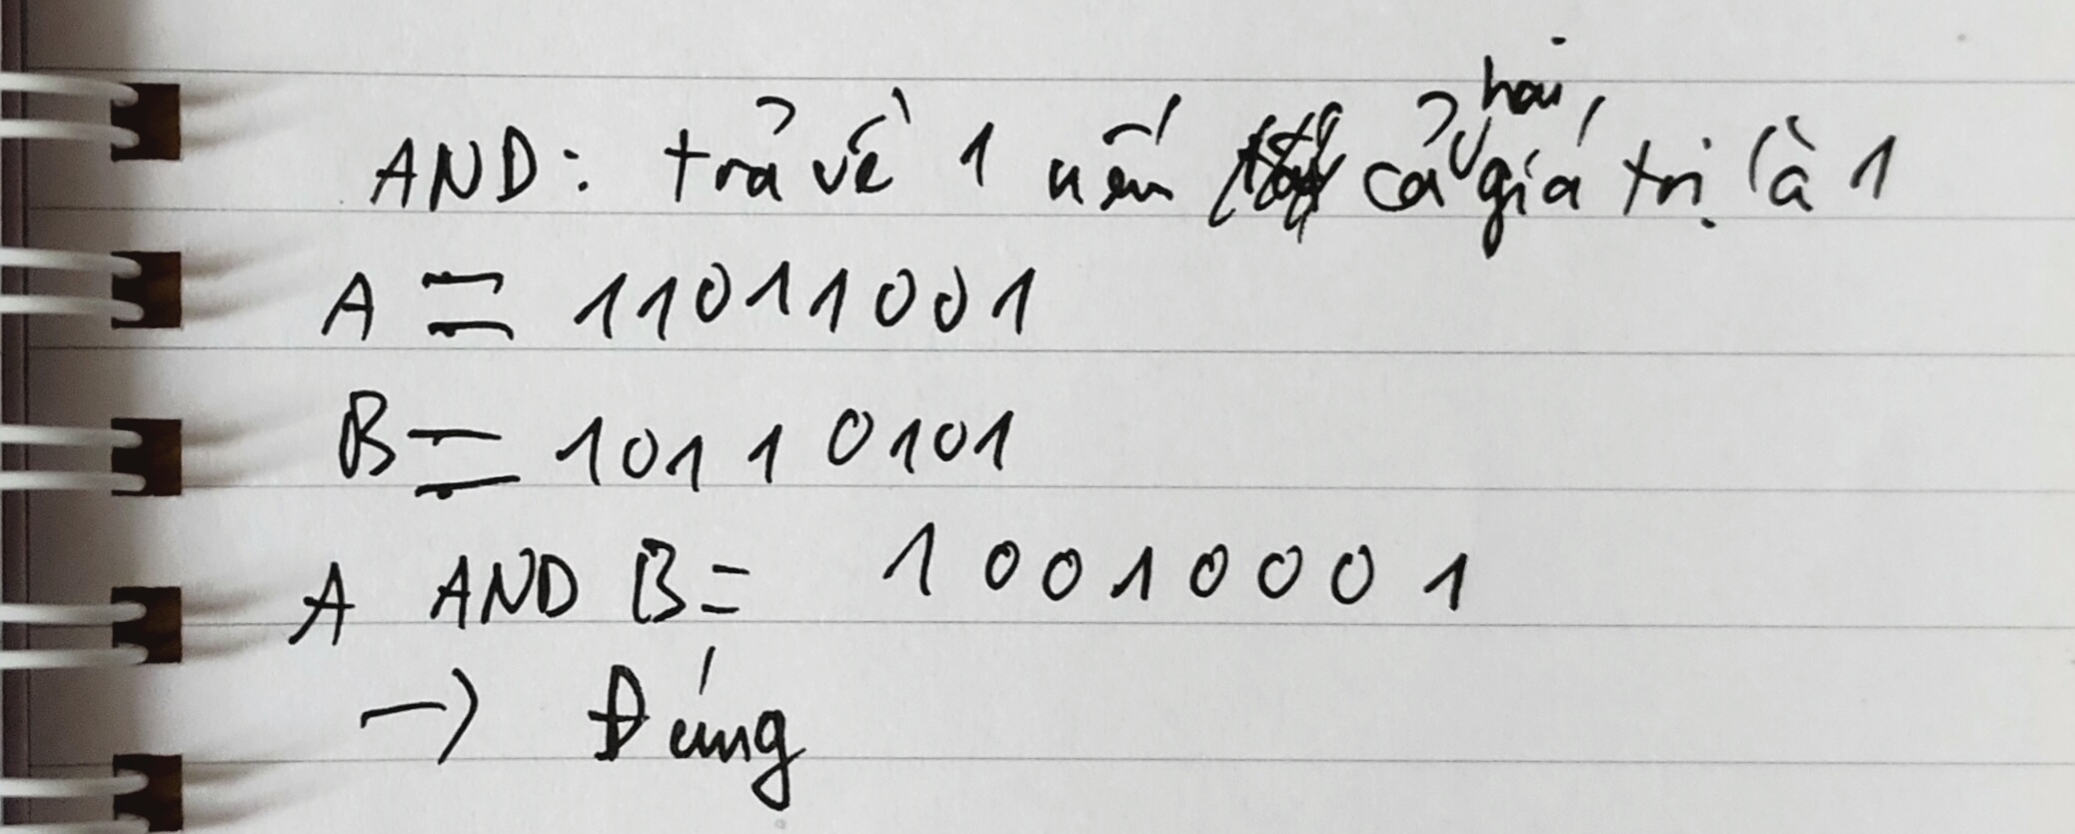 AND: trả về 1 nếu cả hai giá trị là 1
A = 11011001
B = 10110101
A AND B = 10010001
→ Đúng